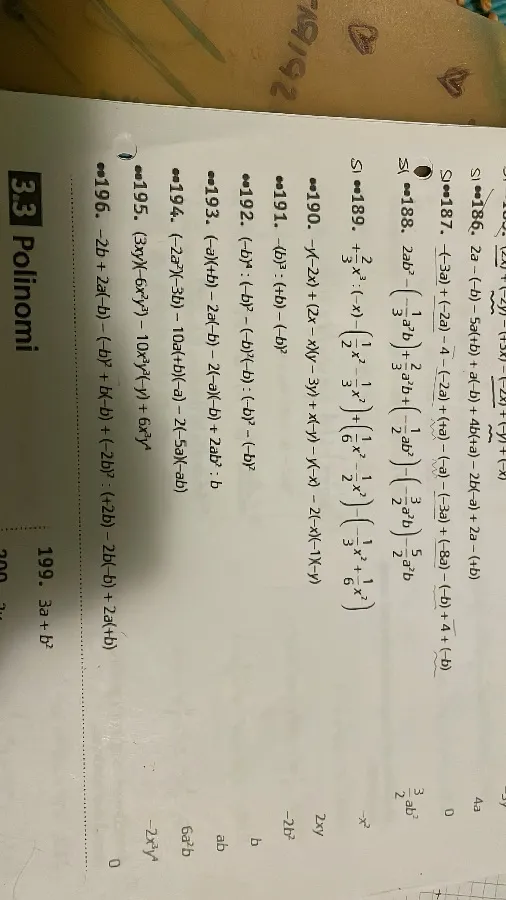 (2x) + (-2y) - (+3x) - (-2x) + (-y) + (-x)
SI ●●186. 2a - (-b) - 5a(+b) + a(-b) + 4b(+a) - 2b(-a) + 2a - (+b) 4a
SI ●●187. -(-3a) + (-2a) - 4 - (-2a) + (+a) - (-a) - (-3a) + (-8a) - (-b) + 4 + (-b) 0
SI ●●188. 2ab² - (-1/3 a²b) + 2/3 a²b + (-1/2 ab²) - (-3/2 a²b) - 5/2 a²b 3/2 ab²
SI ●●189. +2/3 x³ : (-x) - (1/2 x² - 1/3 x²) + (1/6 x² - 1/2 x²) - (-1/3 x² + 1/6 x²) -x²
●●190. -y(-2x) + (2x - x)(y - 3y) + x(-y) - y(-x) - 2(-x)(-1)(-y) 2xy
●●191. -(b)³ : (+b) - (-b)² -2b²
●●192. (-b)⁴ : (-b)³ - (-b)²(-b) : (-b)² - (-b)² b
●●193. (-a)(+b) - 2a(-b) - 2(-a)(-b) + 2ab² : b ab
●●194. (-2a²)(-3b) - 10a(+b)(-a) - 2(-5a)(-ab) 6a²b
●●195. (3xy)(-6x²y³) - 10x³y³(-y) + 6x³y⁴ -2x³y⁴
●●196. -2b + 2a(-b) - (-b)² + b(-b) + (-2b)² : (+2b) - 2b(-b) + 2a(+b) 0
3.3 Polinomi
199. 3a + b²
719192